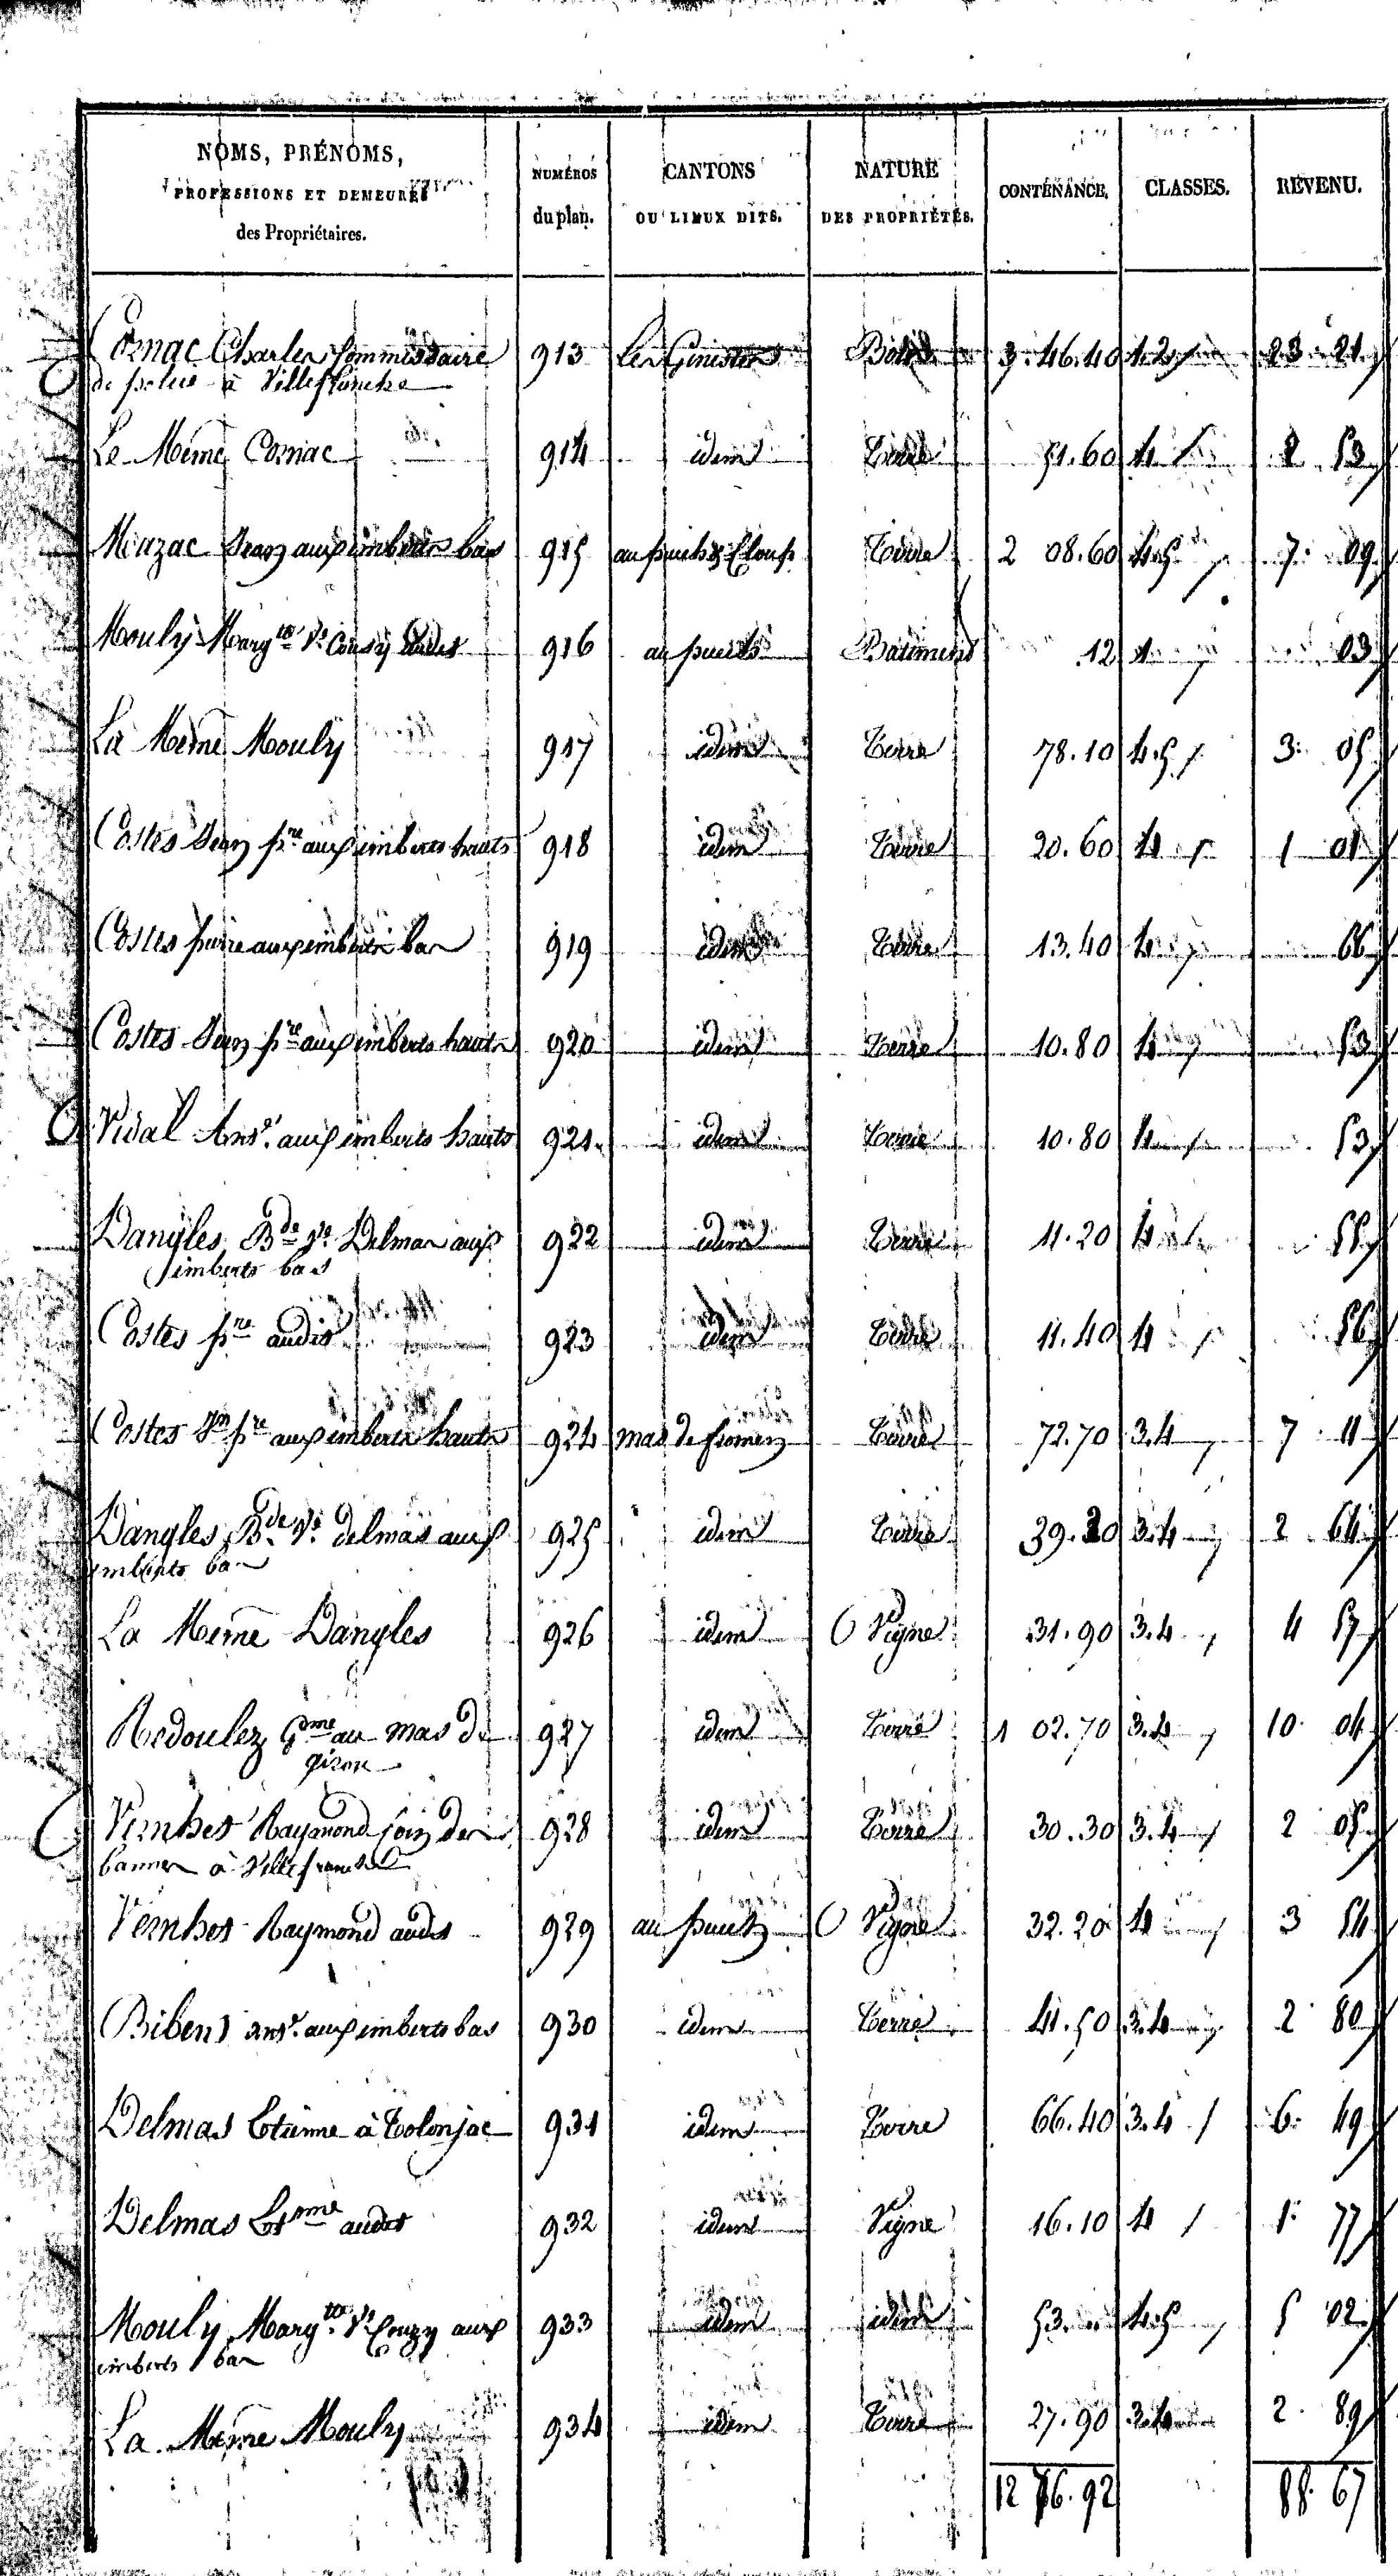 NOMS, PRÉNOMS, PROFESSIONS ET DEMEURES des Propriétaires. NUMÉROS du plan. CANTONS OU LIEUX DITS. NATURE DES PROPRIÉTÉS. CONTENANCE. CLASSES. REVENU.
Cornac Charles Commissaire 913 Les Ginestes 3. 46. 40 23 21
de police à Villefranche
Le Même Cornac 914 idem Terre 51. 60 4 2 53
Mouzac Jean aux imberts bas 915 Terre 2 08. 60 4.5 7 09
Mouly Marg.te V.e Couzy audit 916 au puits Batiment 12 03
La Même Mouly 917 idem Terre 78. 10 4.5 3 05
Costes Jean p.re aux imberts hauts 918 idem Terre 20. 60 4 1 01
Costes pierre aux imberts bas 919 idem Terre 13. 40 4 66
Costes Jean p.re aux imberts hauts 920 idem Terre 10. 80 4 53
Vidal Ant.e aux imberts hauts 921 idem Terre 10. 80 4 53
Dangles B.de V.e Delmas aux 922 idem Terre 11. 20 4 55
imberts bas
Costes p.re audit 923 idem Terre 11. 40 4 56
Costes J.n p.re aux imberts hauts 924 mas de fromen Terre 72. 70 3.4 7 11
Dangles B.de V.e delmas aux 925 idem Terre 39. 20 3.4 2 64
imberts bas
La Même Dangles 926 idem Vigne 31. 90 3.4 4 57
Redoulez G.me au mas de 927 idem Terre 1 02. 70 3.4 10 04
giron
Vembes Raymond 928 idem Terre 30. 30 3.4 2 05
à Villefranche
Vembes Raymond audit 929 au puits Vigne 32. 20 4 3 54
Bibens Ant.e aux imberts bas 930 idem Terre 41. 50 3.4 2 80
Delmas Etienne à Tolonjac 931 idem Terre 66. 40 3.4 6 49
Delmas audit 932 idem Vigne 16. 10 4 1 77
Mouly Marg.te V.e Couzy aux 933 idem idem 53. 4.5 5 02
imberts bas
La Même Mouly 934 idem Terre 27. 90 3.4 2 89
12 76. 92 88 67